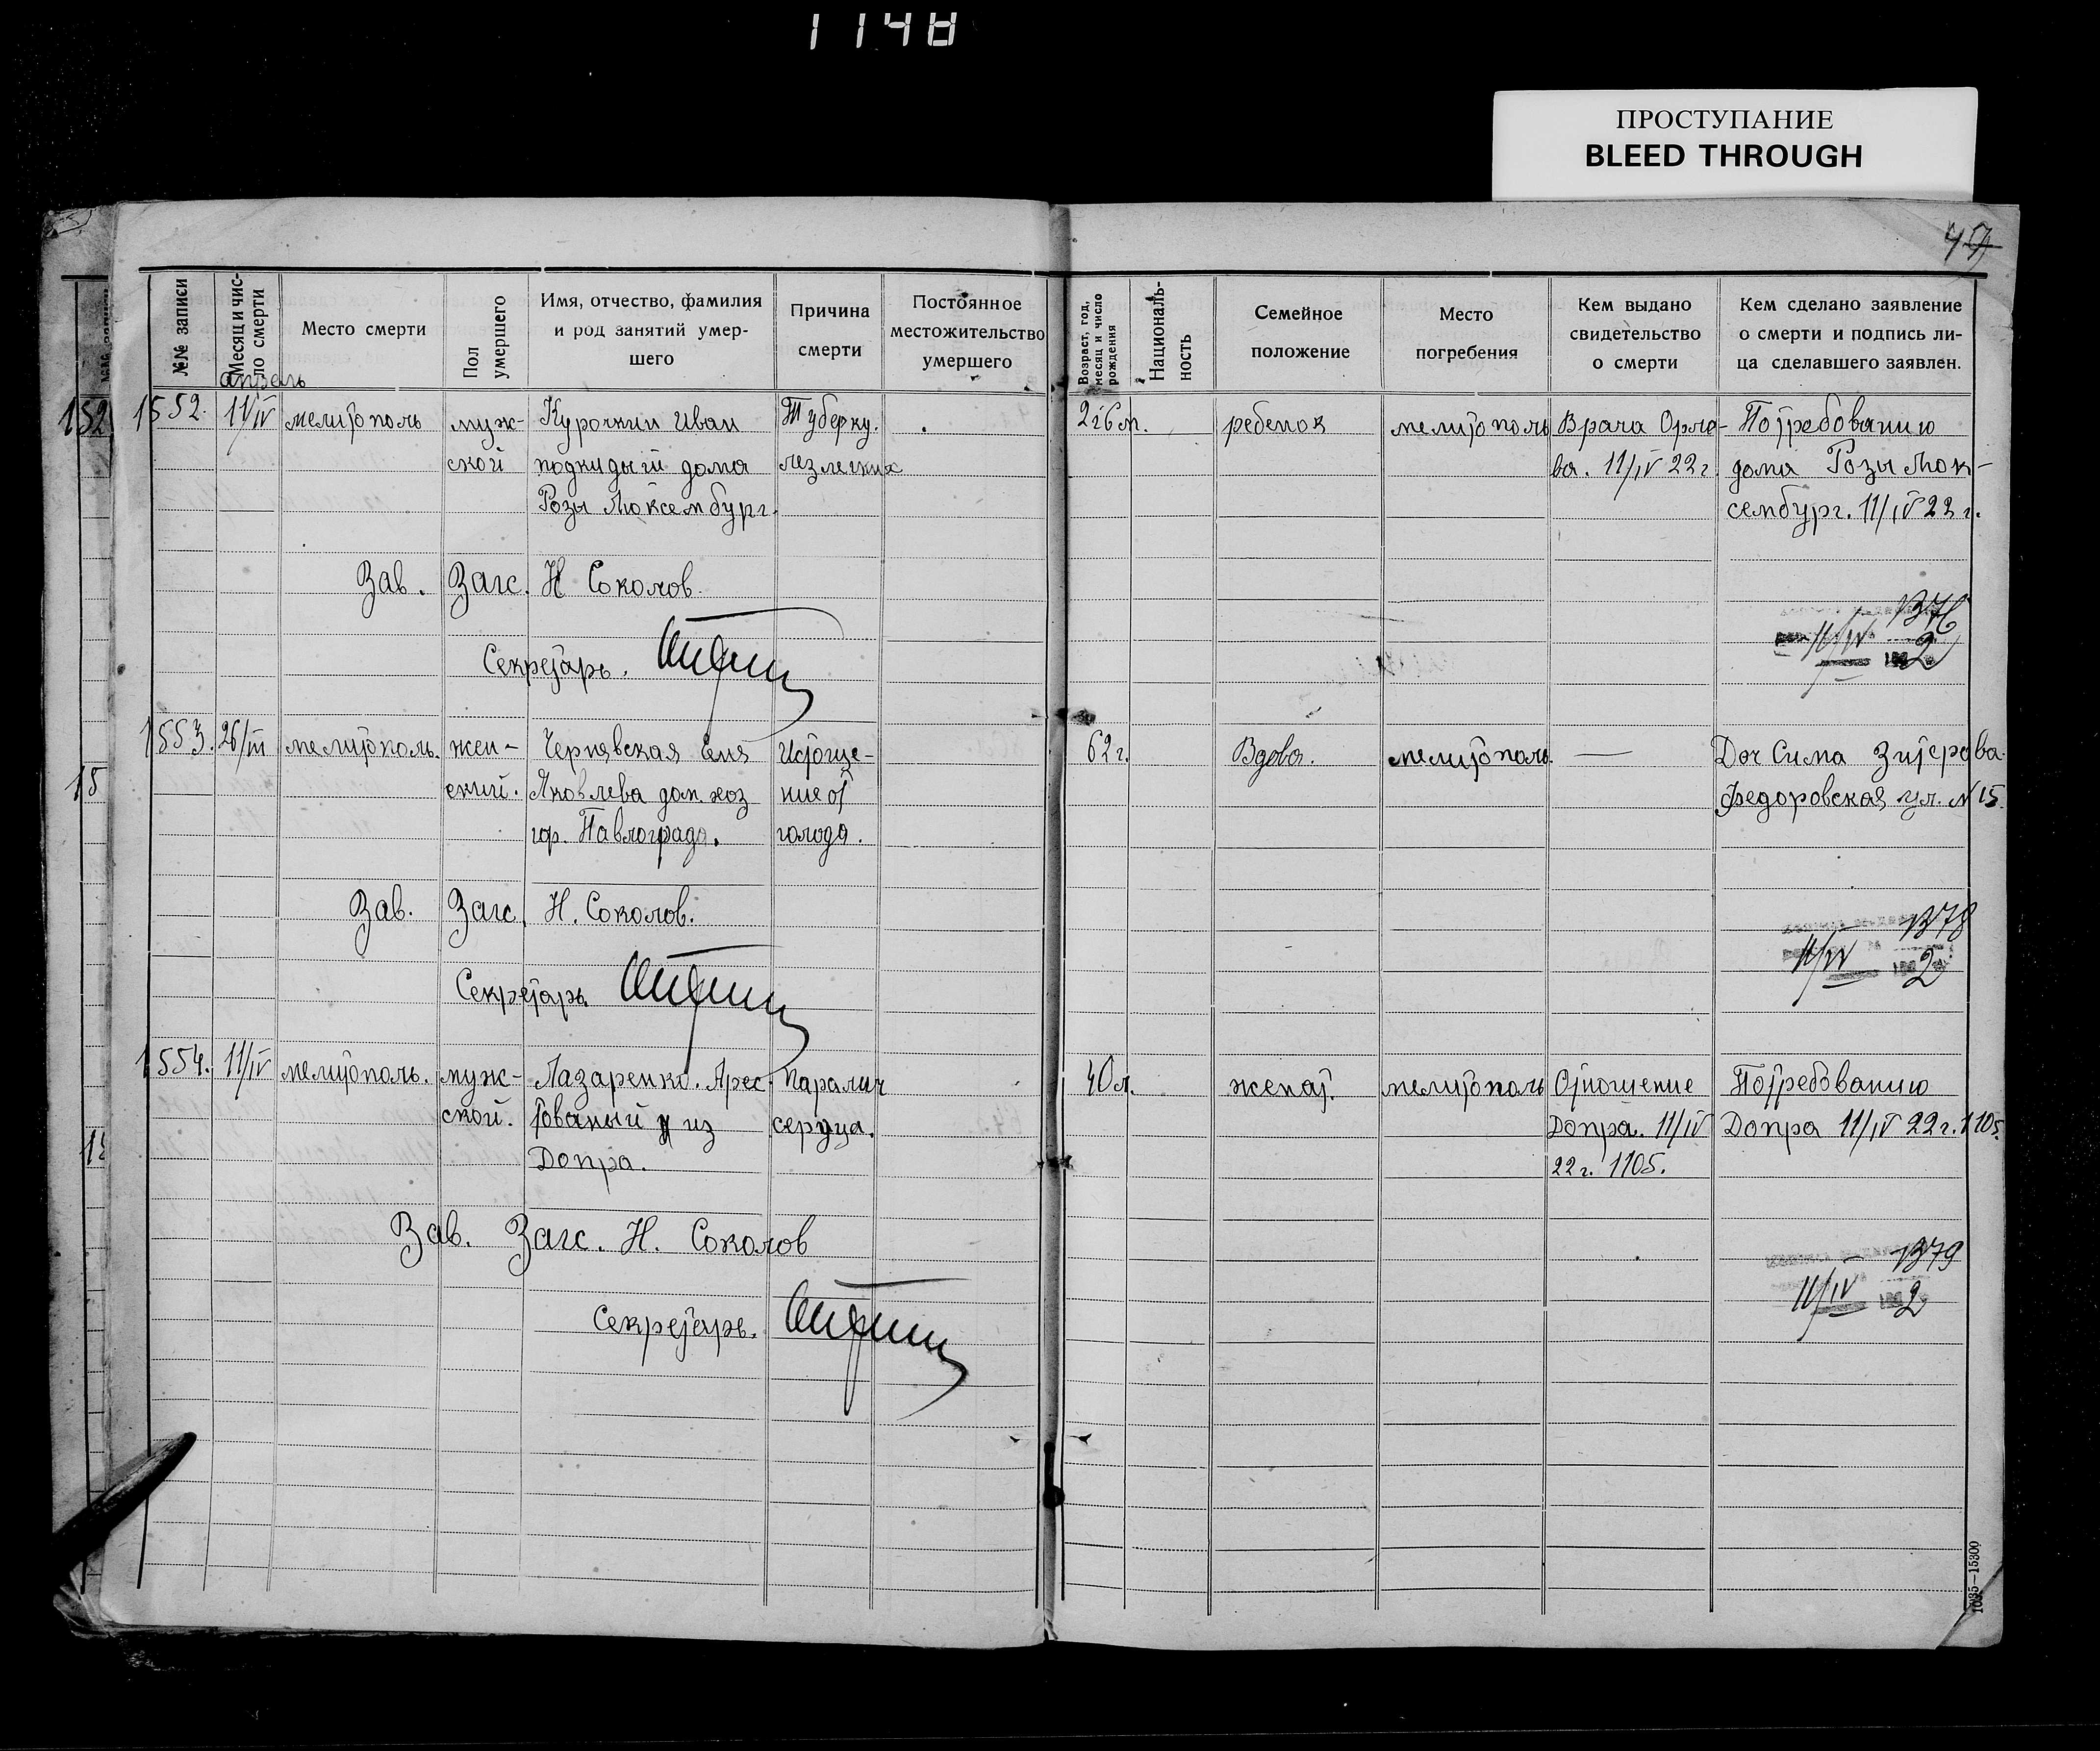 1148
ПРОСТУПАНИЕ
BLEED THROUGH
№№ записи
Месяц и чис-
ло смерти
Место смерти
Пол
умершего
Имя, отчество, фамилия
и род занятий умер-
шего
Причина
смерти
Постоянное
местожительство
умершего
Возраст, год,
месяц и число
рождения
Националь-
ность
Семейное
положение
Место
погребения
Кем выдано
свидетельство
о смерти
Кем сделано заявление
о смерти и подпись ли-
ца сделавшего заявлен.
апрель
1552.
11/IV
мелитополь
муж-
ской
Курочкин Иван
подкидыш дома
Розы Люксембург.
Туберку.
лез легких
2г6м.
ребенок
мелитополь
Врача Орло-
ва. 11/IV 22г.
По требованию
дома Розы Люк-
сембург. 11/IV 22г.
Зав. Загс. Н Соколов.
Секретарь.
1376
11/IV 192 2
1553.
26/III
мелитополь.
жен-
ский.
Чернявская
Яковлева дом. хоз
гр. Павлограда.
Истоще-
ние от
голода.
62г.
Вдова.
мелитополь.
—
Доч Сима Зитерова.
Федоровская ул. №15.
Зав. Загс. Н. Соколов.
Секретарь
1378
11/IV 192 2
1554.
11/IV
мелитополь.
муж-
ской.
Лазаренко. Арес-
тованый из
Допра.
Паралич
сердца.
40л.
женат.
мелитополь
Отношение
Допра. 11/IV
22г. 1105.
По требованию
Допра 11/IV 22г. 1105.
Зав. Загс. Н. Соколов
Секретарь.
1379
11/IV 192 2
1035—15300